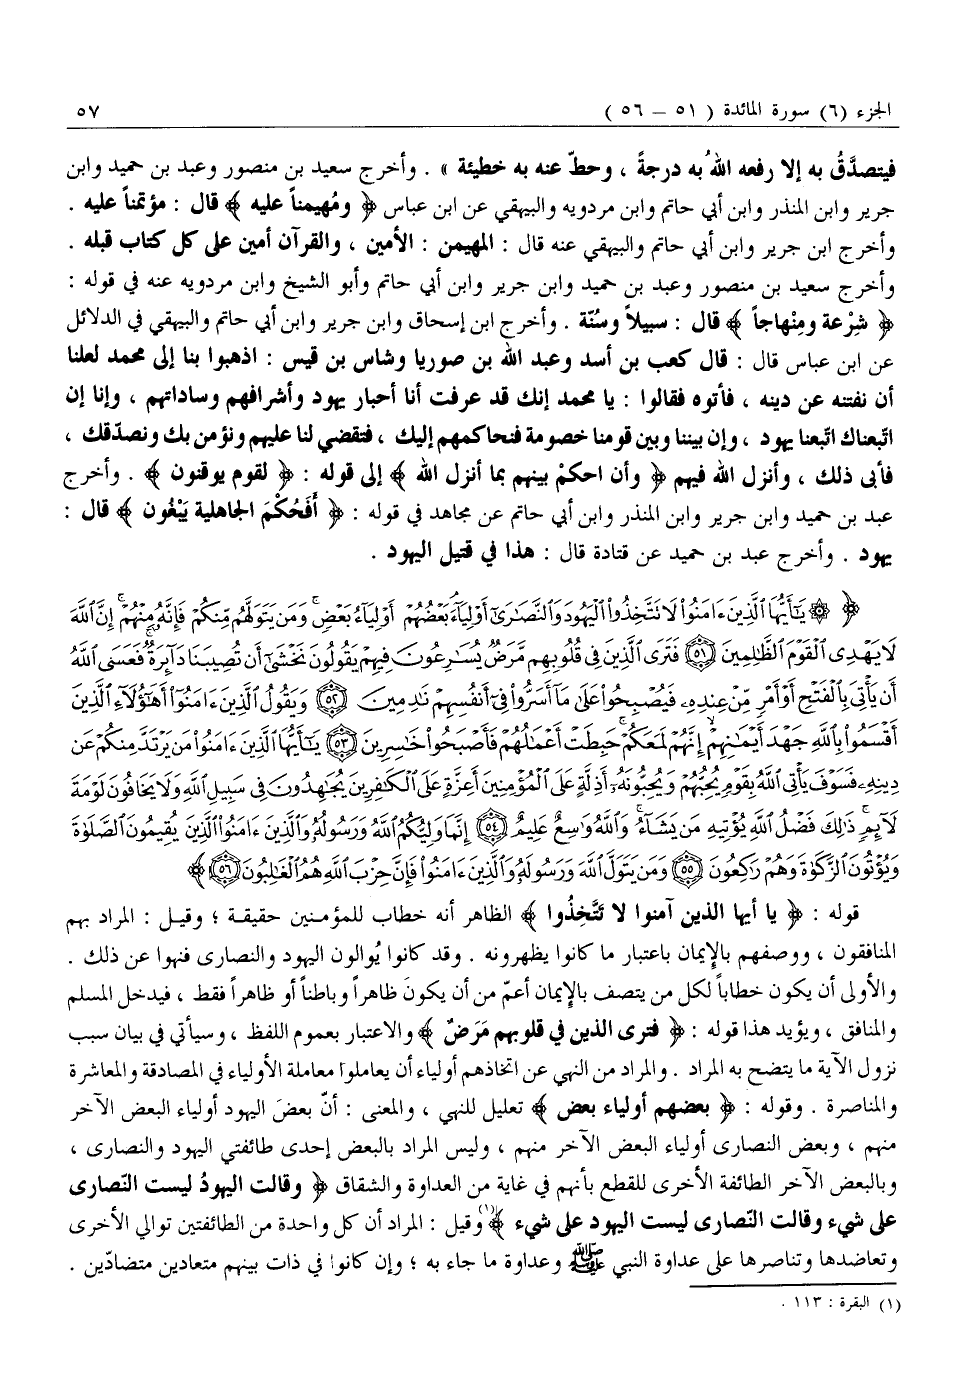 الجزء (٦) سورة المائدة ( ٥١ - ٥٦ ) ٥٧
فيتصدَّقُ به إلا رفعه اللهُ به درجةً ، وحطّ عنه به خطيئة » . وأخرج سعيد بن منصور وعبد بن حميد وابن
جرير وابن المنذر وابن أبي حاتم وابن مردويه والبيهقي عن ابن عباس ﴿ ومُهيمناً عليه ﴾ قال : مؤتمناً عليه .
وأخرج ابن جرير وابن أبي حاتم والبيهقي عنه قال : المهيمن : الأمين ، والقرآن أمين على كل كتاب قبله .
وأخرج سعيد بن منصور وعبد بن حميد وابن جرير وابن أبي حاتم وأبو الشيخ وابن مردويه عنه في قوله :
﴿ شِرْعة ومِنْهاجاً ﴾ قال : سبيلاً وسُنّة . وأخرج ابن إسحاق وابن جرير وابن أبي حاتم والبيهقي في الدلائل
عن ابن عباس قال : قال كعب بن أسد وعبد الله بن صوريا وشاس بن قيس : اذهبوا بنا إلى محمد لعلنا
أن نفتنه عن دينه ، فأتوه فقالوا : يا محمد إنك قد عرفت أنا أحبار يهود وأشرافهم وساداتهم ، وإنا إن
اتّبعناك اتّبعنا يهود ، وإن بيننا وبين قومنا خصومة فنحاكمهم إليك ، فتقضي لنا عليهم ونؤمن بك ونصدّقك ،
فأبى ذلك ، وأنزل الله فيهم ﴿ وأن احكمْ بينهم بما أنزل الله ﴾ إلى قوله : ﴿ لقوم يوقنون ﴾ . وأخرج
عبد بن حميد وابن جرير وابن المنذر وابن أبي حاتم عن مجاهد في قوله : ﴿ أَفَحُكْمَ الجاهلية يَبْغُون ﴾ قال :
يهود . وأخرج عبد بن حميد عن قتادة قال : هذا في قتيل اليهود .
﴿ ۞ يَٰٓأَيُّهَا ٱلَّذِينَ ءَامَنُوا۟ لَا تَتَّخِذُوا۟ ٱلْيَهُودَ وَٱلنَّصَٰرَىٰٓ أَوْلِيَآءَ بَعْضُهُمْ أَوْلِيَآءُ بَعْضٍ وَمَن يَتَوَلَّهُم مِّنكُمْ فَإِنَّهُۥ مِنْهُمْ إِنَّ ٱللَّهَ
لَا يَهْدِى ٱلْقَوْمَ ٱلظَّٰلِمِينَ ٥١ فَتَرَى ٱلَّذِينَ فِى قُلُوبِهِم مَّرَضٌ يُسَٰرِعُونَ فِيهِمْ يَقُولُونَ نَخْشَىٰٓ أَن تُصِيبَنَا دَآئِرَةٌ فَعَسَى ٱللَّهُ
أَن يَأْتِىَ بِٱلْفَتْحِ أَوْ أَمْرٍ مِّنْ عِندِهِۦ فَيُصْبِحُوا۟ عَلَىٰ مَآ أَسَرُّوا۟ فِىٓ أَنفُسِهِمْ نَٰدِمِينَ ٥٢ وَيَقُولُ ٱلَّذِينَ ءَامَنُوٓا۟ أَهَٰٓؤُلَآءِ ٱلَّذِينَ
أَقْسَمُوا۟ بِٱللَّهِ جَهْدَ أَيْمَٰنِهِمْ إِنَّهُمْ لَمَعَكُمْ حَبِطَتْ أَعْمَٰلُهُمْ فَأَصْبَحُوا۟ خَٰسِرِينَ ٥٣ يَٰٓأَيُّهَا ٱلَّذِينَ ءَامَنُوا۟ مَن يَرْتَدَّ مِنكُمْ عَن
دِينِهِۦ فَسَوْفَ يَأْتِى ٱللَّهُ بِقَوْمٍ يُحِبُّهُمْ وَيُحِبُّونَهُۥٓ أَذِلَّةٍ عَلَى ٱلْمُؤْمِنِينَ أَعِزَّةٍ عَلَى ٱلْكَٰفِرِينَ يُجَٰهِدُونَ فِى سَبِيلِ ٱللَّهِ وَلَا يَخَافُونَ لَوْمَةَ
لَآئِمٍ ذَٰلِكَ فَضْلُ ٱللَّهِ يُؤْتِيهِ مَن يَشَآءُ وَٱللَّهُ وَٰسِعٌ عَلِيمٌ ٥٤ إِنَّمَا وَلِيُّكُمُ ٱللَّهُ وَرَسُولُهُۥ وَٱلَّذِينَ ءَامَنُوا۟ ٱلَّذِينَ يُقِيمُونَ ٱلصَّلَوٰةَ
وَيُؤْتُونَ ٱلزَّكَوٰةَ وَهُمْ رَٰكِعُونَ ٥٥ وَمَن يَتَوَلَّ ٱللَّهَ وَرَسُولَهُۥ وَٱلَّذِينَ ءَامَنُوا۟ فَإِنَّ حِزْبَ ٱللَّهِ هُمُ ٱلْغَٰلِبُونَ ٥٦ ﴾
قوله : ﴿ يا أيها الذين آمنوا لا تَتَّخِذُوا ﴾ الظاهر أنه خطاب للمؤمنين حقيقة ؛ وقيل : المراد بهم
المنافقون ، ووصفهم بالإِيمان باعتبار ما كانوا يظهرونه . وقد كانوا يُوالون اليهود والنصارى فنهوا عن ذلك .
والأولى أن يكون خطاباً لكل من يتصف بالإِيمان أعمّ من أن يكون ظاهراً وباطناً أو ظاهراً فقط ، فيدخل المسلم
والمنافق ، ويؤيد هذا قوله : ﴿ فترى الذين في قلوبهم مَرَضٌ ﴾ والاعتبار بعموم اللفظ ، وسيأتي في بيان سبب
نزول الآية ما يتضح به المراد . والمراد من النهي عن اتخاذهم أولياء أن يعاملوا معاملة الأولياء في المصادقة والمعاشرة
والمناصرة . وقوله : ﴿ بعضهم أولياء بعض ﴾ تعليل للنهي ، والمعنى : أنّ بعضَ اليهود أولياء البعض الآخر
منهم ، وبعض النصارى أولياء البعض الآخر منهم ، وليس المراد بالبعض إحدى طائفتي اليهود والنصارى ،
وبالبعض الآخر الطائفة الأخرى للقطع بأنهم في غاية من العداوة والشقاق ﴿ وقالت اليهودُ ليست النّصارى
على شيء وقالت النّصارى ليست اليهود على شيء ﴾(١) وقيل : المراد أن كل واحدة من الطائفتين توالي الأخرى
وتعاضدها وتناصرها على عداوة النبي ﷺ وعداوة ما جاء به ؛ وإن كانوا في ذات بينهم متعادين متضادّين .
(١) البقرة : ١١٣ .